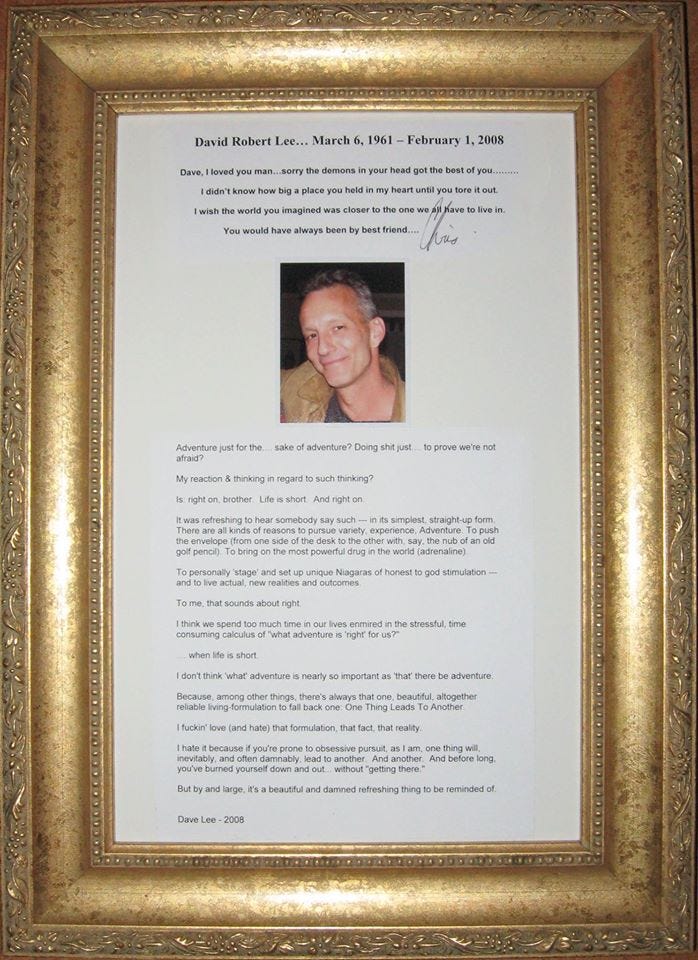 David Robert Lee… March 6, 1961 – February 1, 2008
Dave, I loved you man…sorry the demons in your head got the best of you………
I didn't know how big a place you held in my heart until you tore it out.
I wish the world you imagined was closer to the one we all have to live in.
You would have always been by best friend…. Chris
Adventure just for the.... sake of adventure? Doing shit just.... to prove we're not
afraid?
My reaction & thinking in regard to such thinking?
Is: right on, brother. Life is short. And right on.
It was refreshing to hear somebody say such --- in its simplest, straight-up form.
There are all kinds of reasons to pursue variety, experience, Adventure. To push
the envelope (from one side of the desk to the other with, say, the nub of an old
golf pencil). To bring on the most powerful drug in the world (adrenaline).
To personally 'stage' and set up unique Niagaras of honest to god stimulation ---
and to live actual, new realities and outcomes.
To me, that sounds about right.
I think we spend too much time in our lives enmired in the stressful, time
consuming calculus of "what adventure is 'right' for us?"
.... when life is short.
I don't think 'what' adventure is nearly so important as 'that' there be adventure.
Because, among other things, there's always that one, beautiful, altogether
reliable living-formulation to fall back one: One Thing Leads To Another.
I fuckin' love (and hate) that formulation, that fact, that reality.
I hate it because if you're prone to obsessive pursuit, as I am, one thing will,
inevitably, and often damnably, lead to another. And another. And before long,
you've burned yourself down and out... without "getting there."
But by and large, it's a beautiful and damned refreshing thing to be reminded of.
Dave Lee - 2008